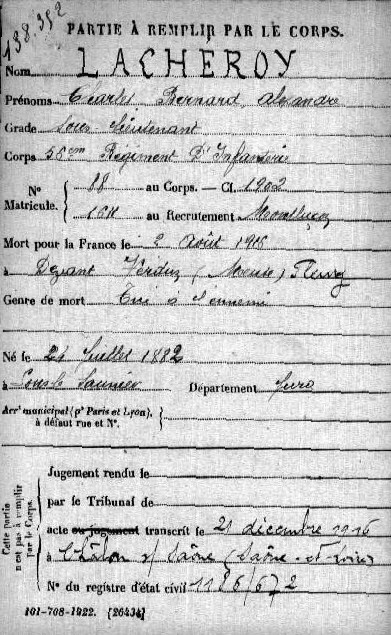 138.352
PARTIE À REMPLIR PAR LE CORPS.
Nom LACHEROY
Prénoms Charles Bernard Alexandre
Grade Sous Lieutenant
Corps 56ème Régiment D'Infanterie
N° Matricule. { 88 au Corps. — Cl. 1902
1611 au Recrutement Montluçon
Mort pour la France le 2 Août 1916
à Devant Verdun (Meuse) Fleury
Genre de mort Tué à l'ennemi
Né le 24 Juillet 1882
à Lons le Saunier Département Jura
Arr' municipal (p' Paris et Lyon), à défaut rue et N°.
Cette partie n'est pas à remplir par le Corps.
Jugement rendu le
par le Tribunal de
acte ou jugement transcrit le 21 décembre 1916
à Châlon s/ Saône (Saône-et-Loire)
N° du registre d'état civil 1186/672
101-708-1922. [26434]